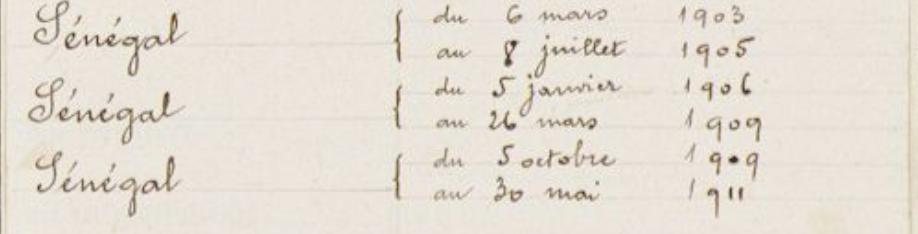 Sénégal { du 6 mars 1903
au 8 juillet 1905
Sénégal { du 5 janvier 1906
au 26 mars 1909
Sénégal { du 5 octobre 1909
au 30 mai 1911